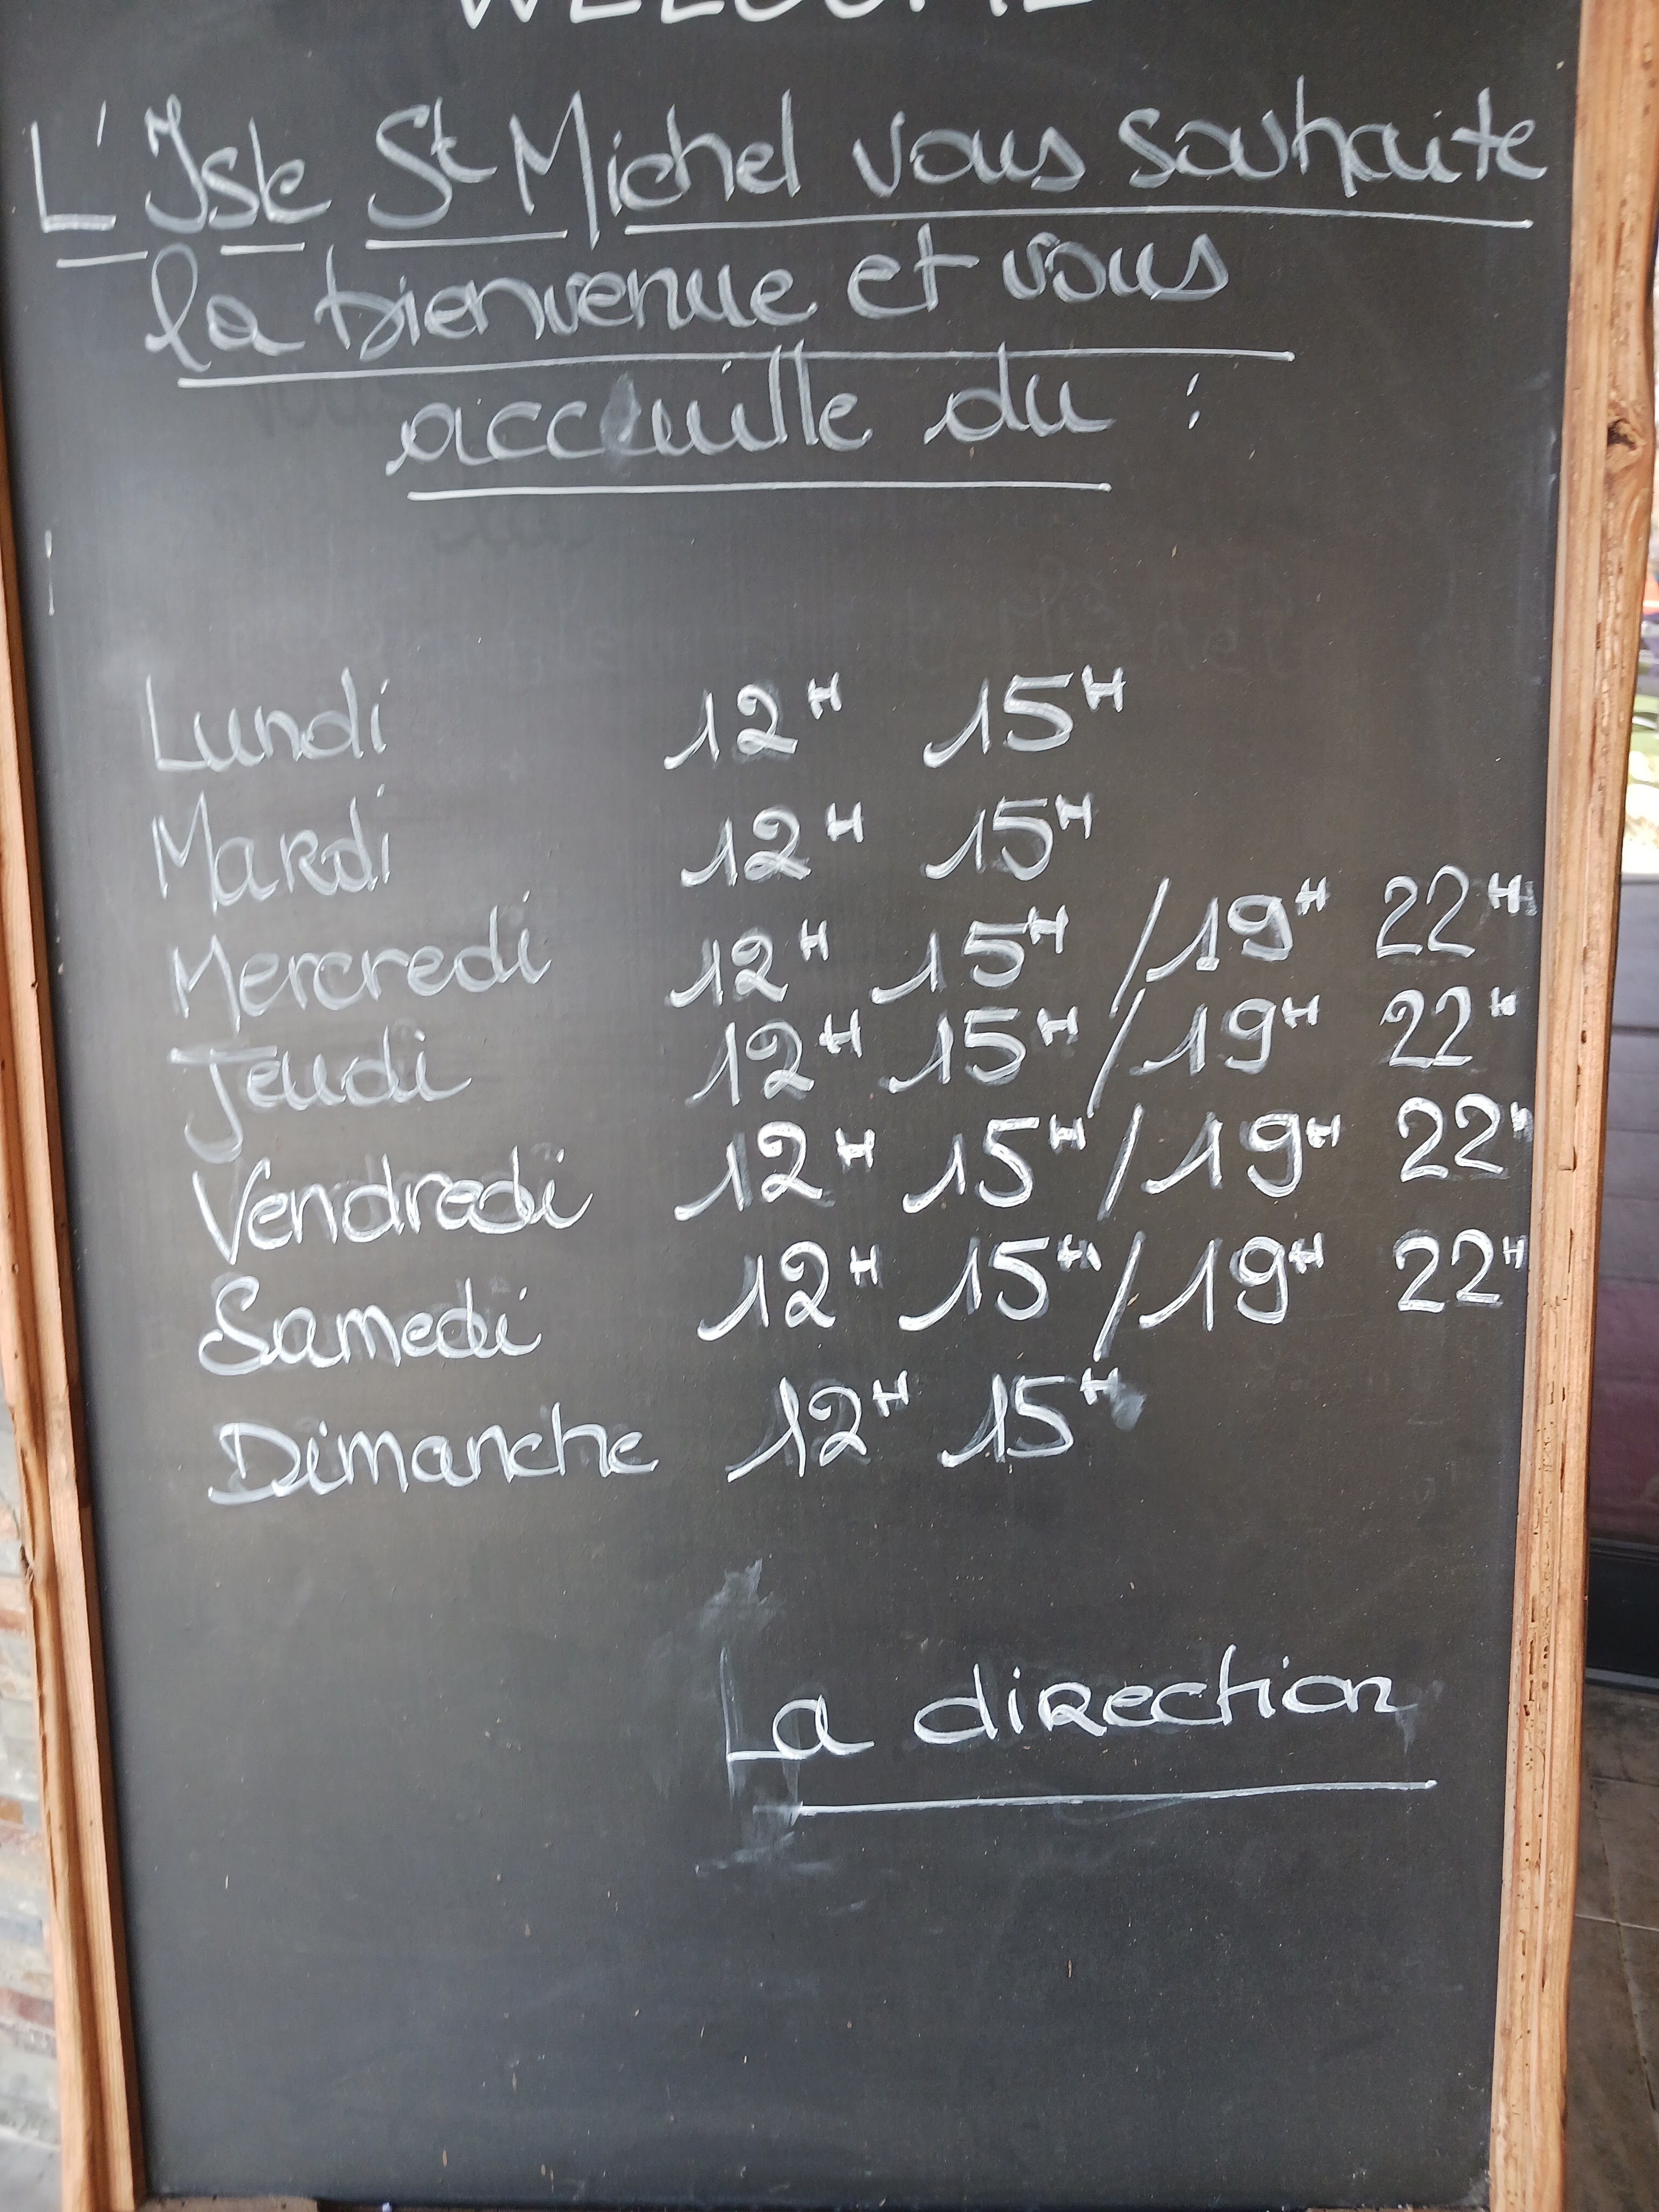 WELCOME
L'Isle St Michel vous souhaite
la bienvenue et vous
accuille du :
Lundi 12H 15H
Mardi 12H 15H
Mercredi 12H 15H / 19H 22H
Jeudi 12H 15H / 19H 22H
Vendredi 12H 15H / 19H 22H
Samedi 12H 15H / 19H 22H
Dimanche 12H 15H
La direction